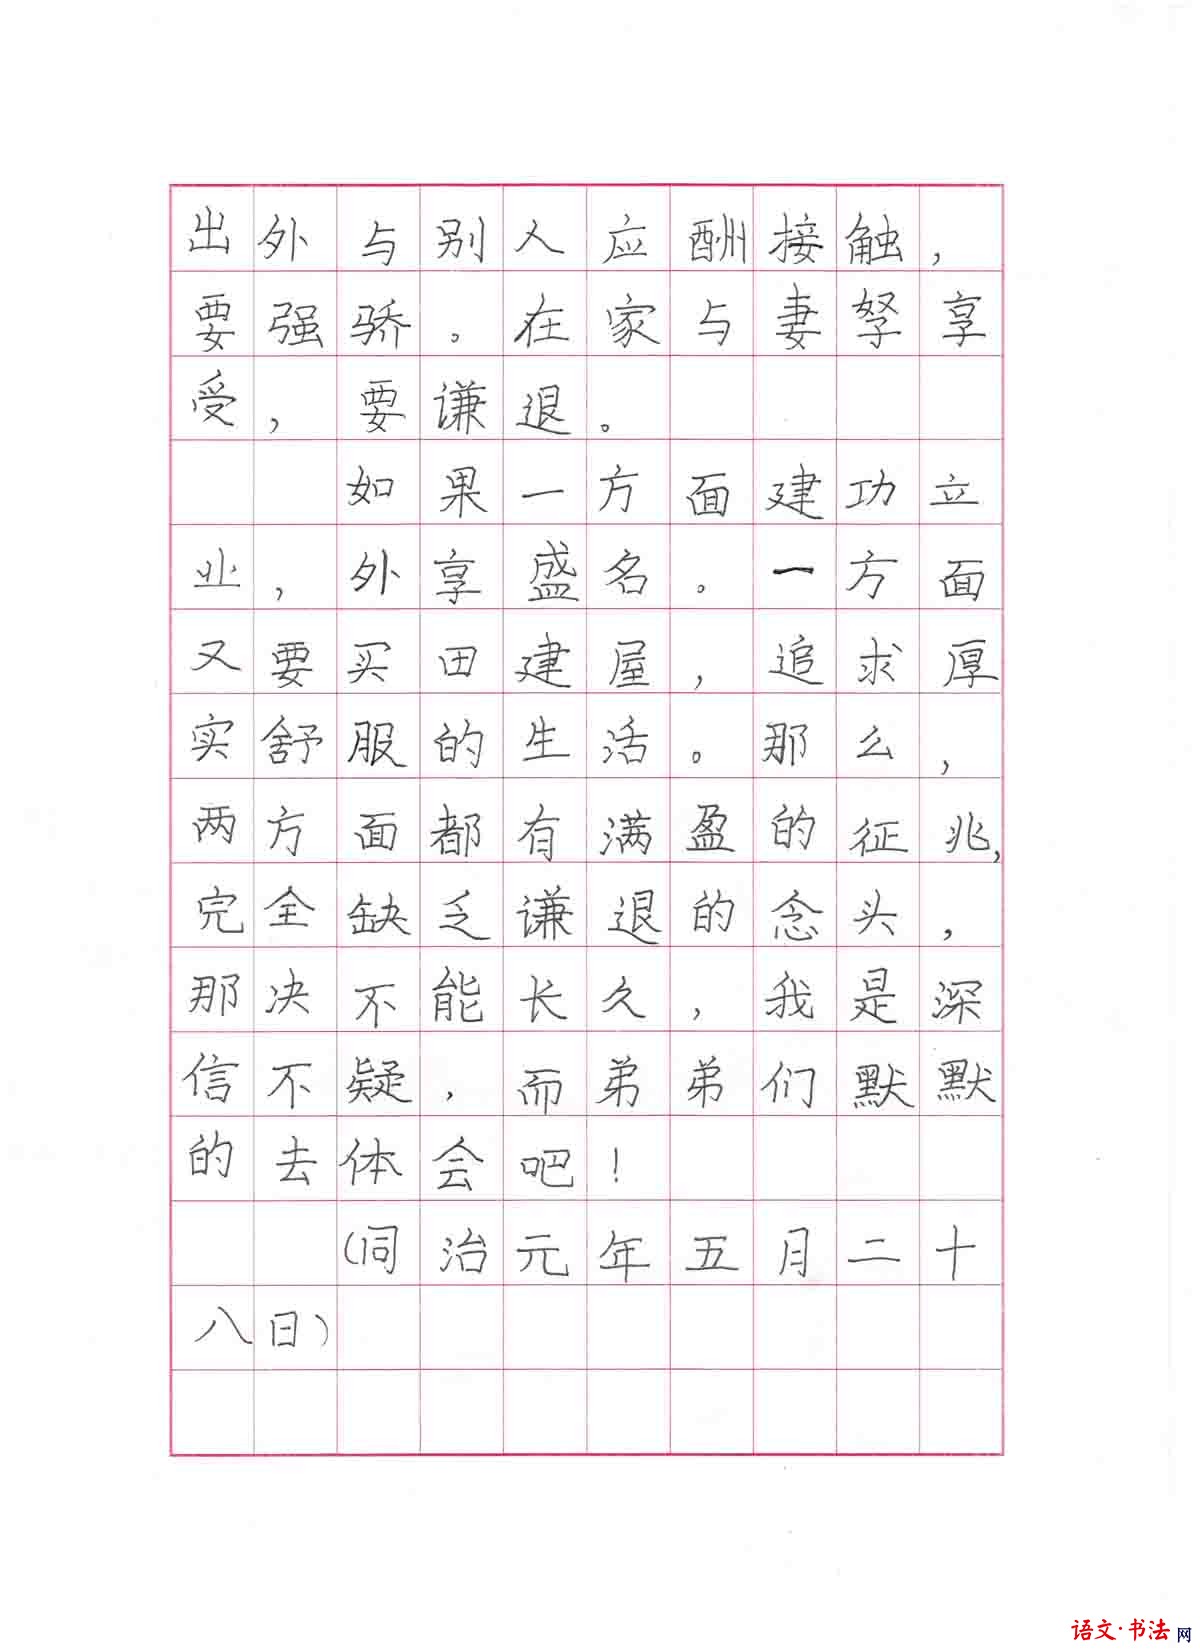 出外与别人应酬接触，
要强骄。在家与妻孥享
受，要谦退。
如果一方面建功立
业，外享盛名。一方面
又要买田建屋，追求厚
实舒服的生活。那么，
两方面都有满盈的征兆，
完全缺乏谦退的念头，
那决不能长久，我是深
信不疑，而弟弟们默默
的去体会吧！
（同治元年五月二十
八日）
语文·书法网